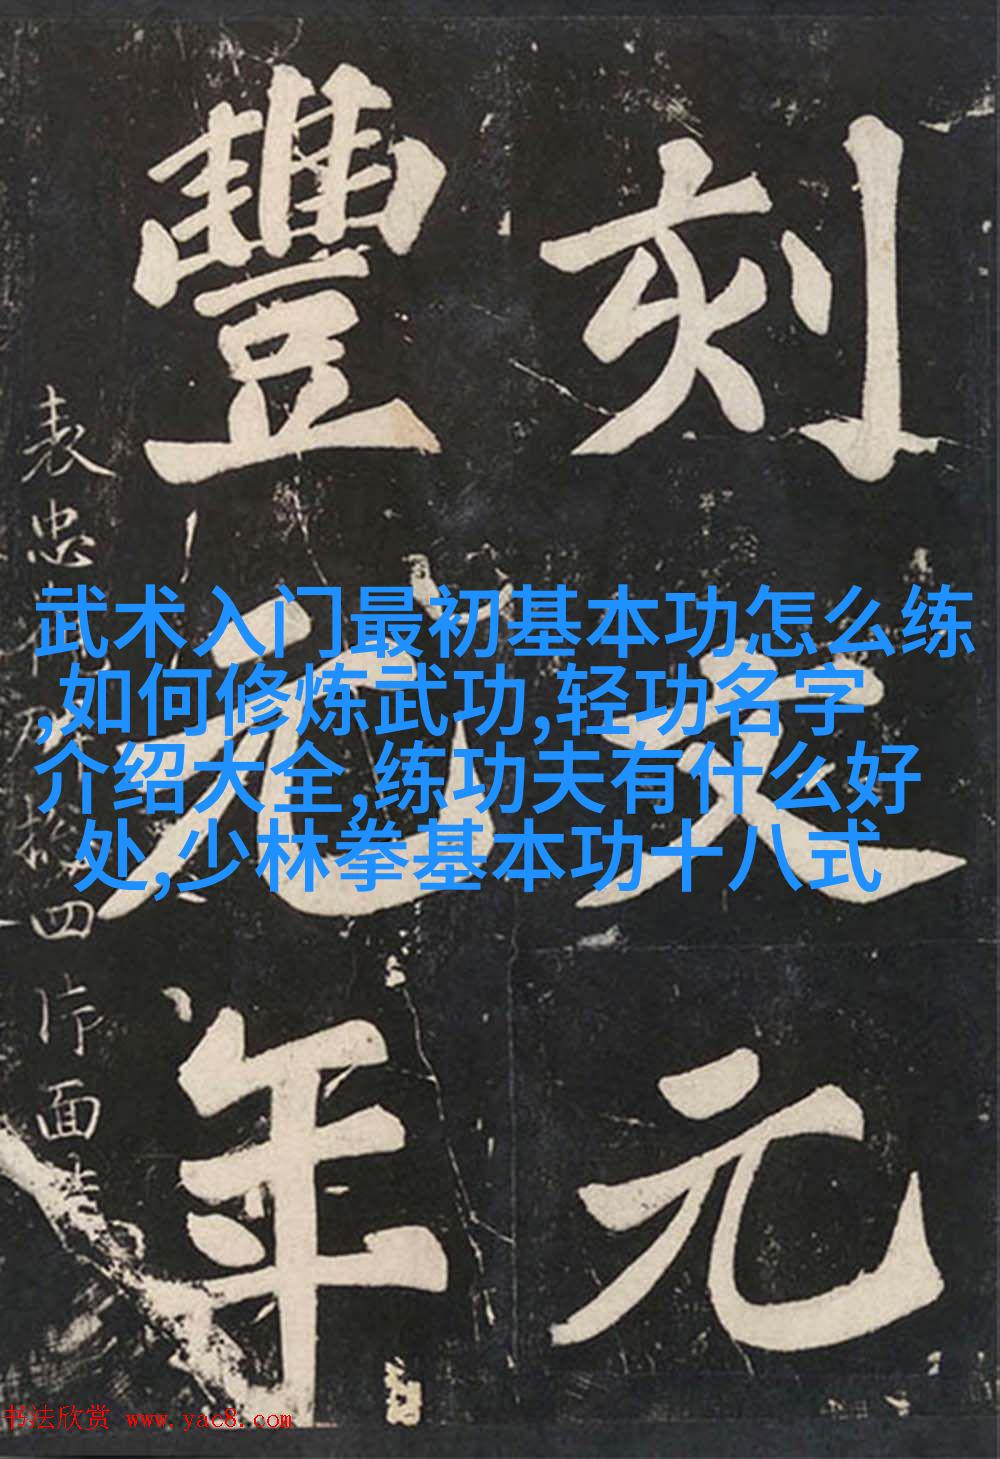 刻文元
豐元年
表忠
四片面
武术入门最初基本功怎么练
,如何修炼武功,轻功名字
介绍大全,练功夫有什么好
处,少林拳基本功十八式
书法欣赏 www.yac8.com